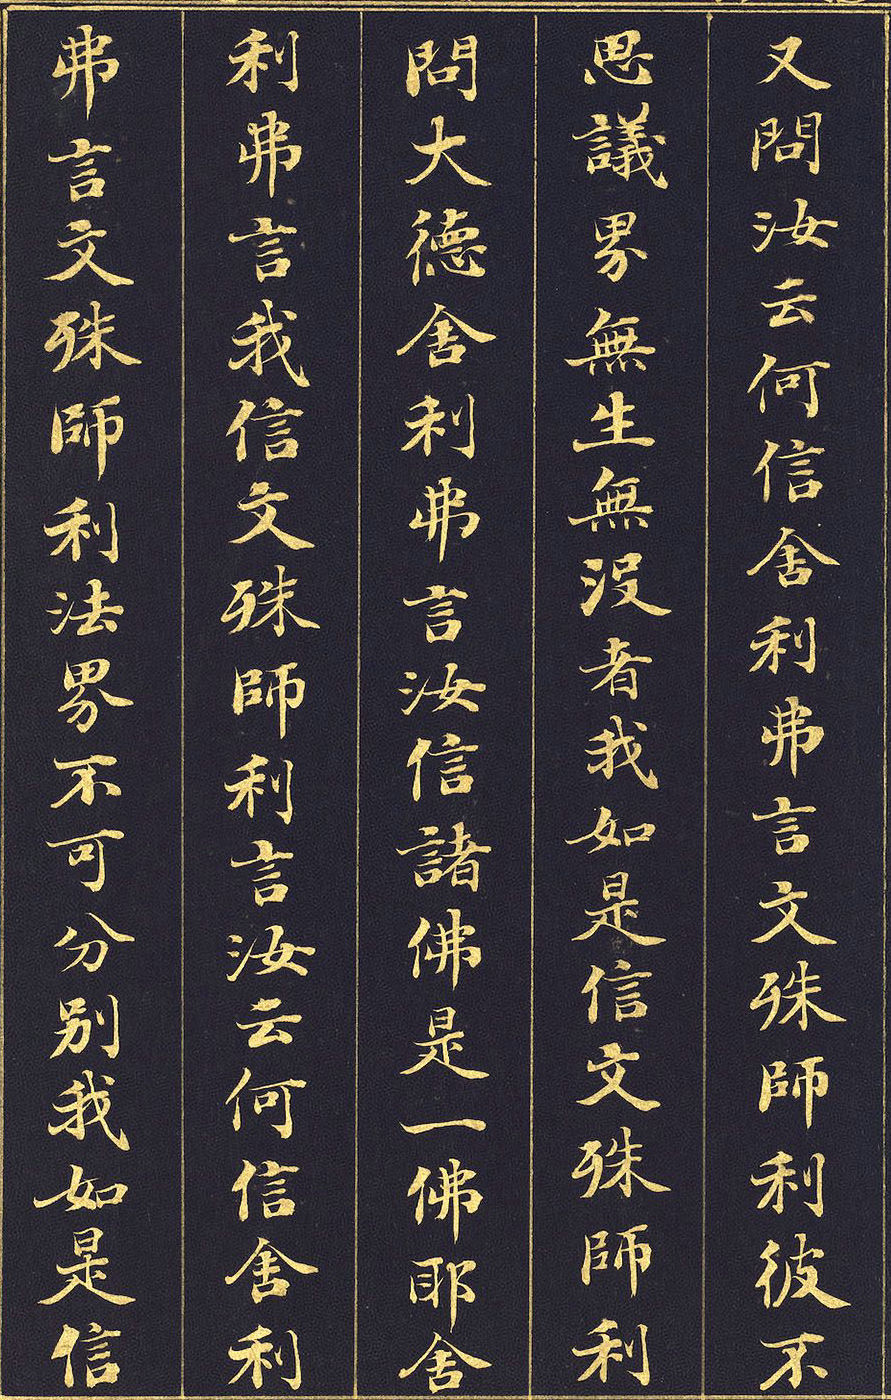 又問汝云何信舍利弗言文殊師利彼不
思議界無生無沒者我如是信文殊師利
問大德舍利弗言汝信諸佛是一佛耶舍
利弗言我信文殊師利言汝云何信舍利
弗言文殊師利法界不可分別我如是信